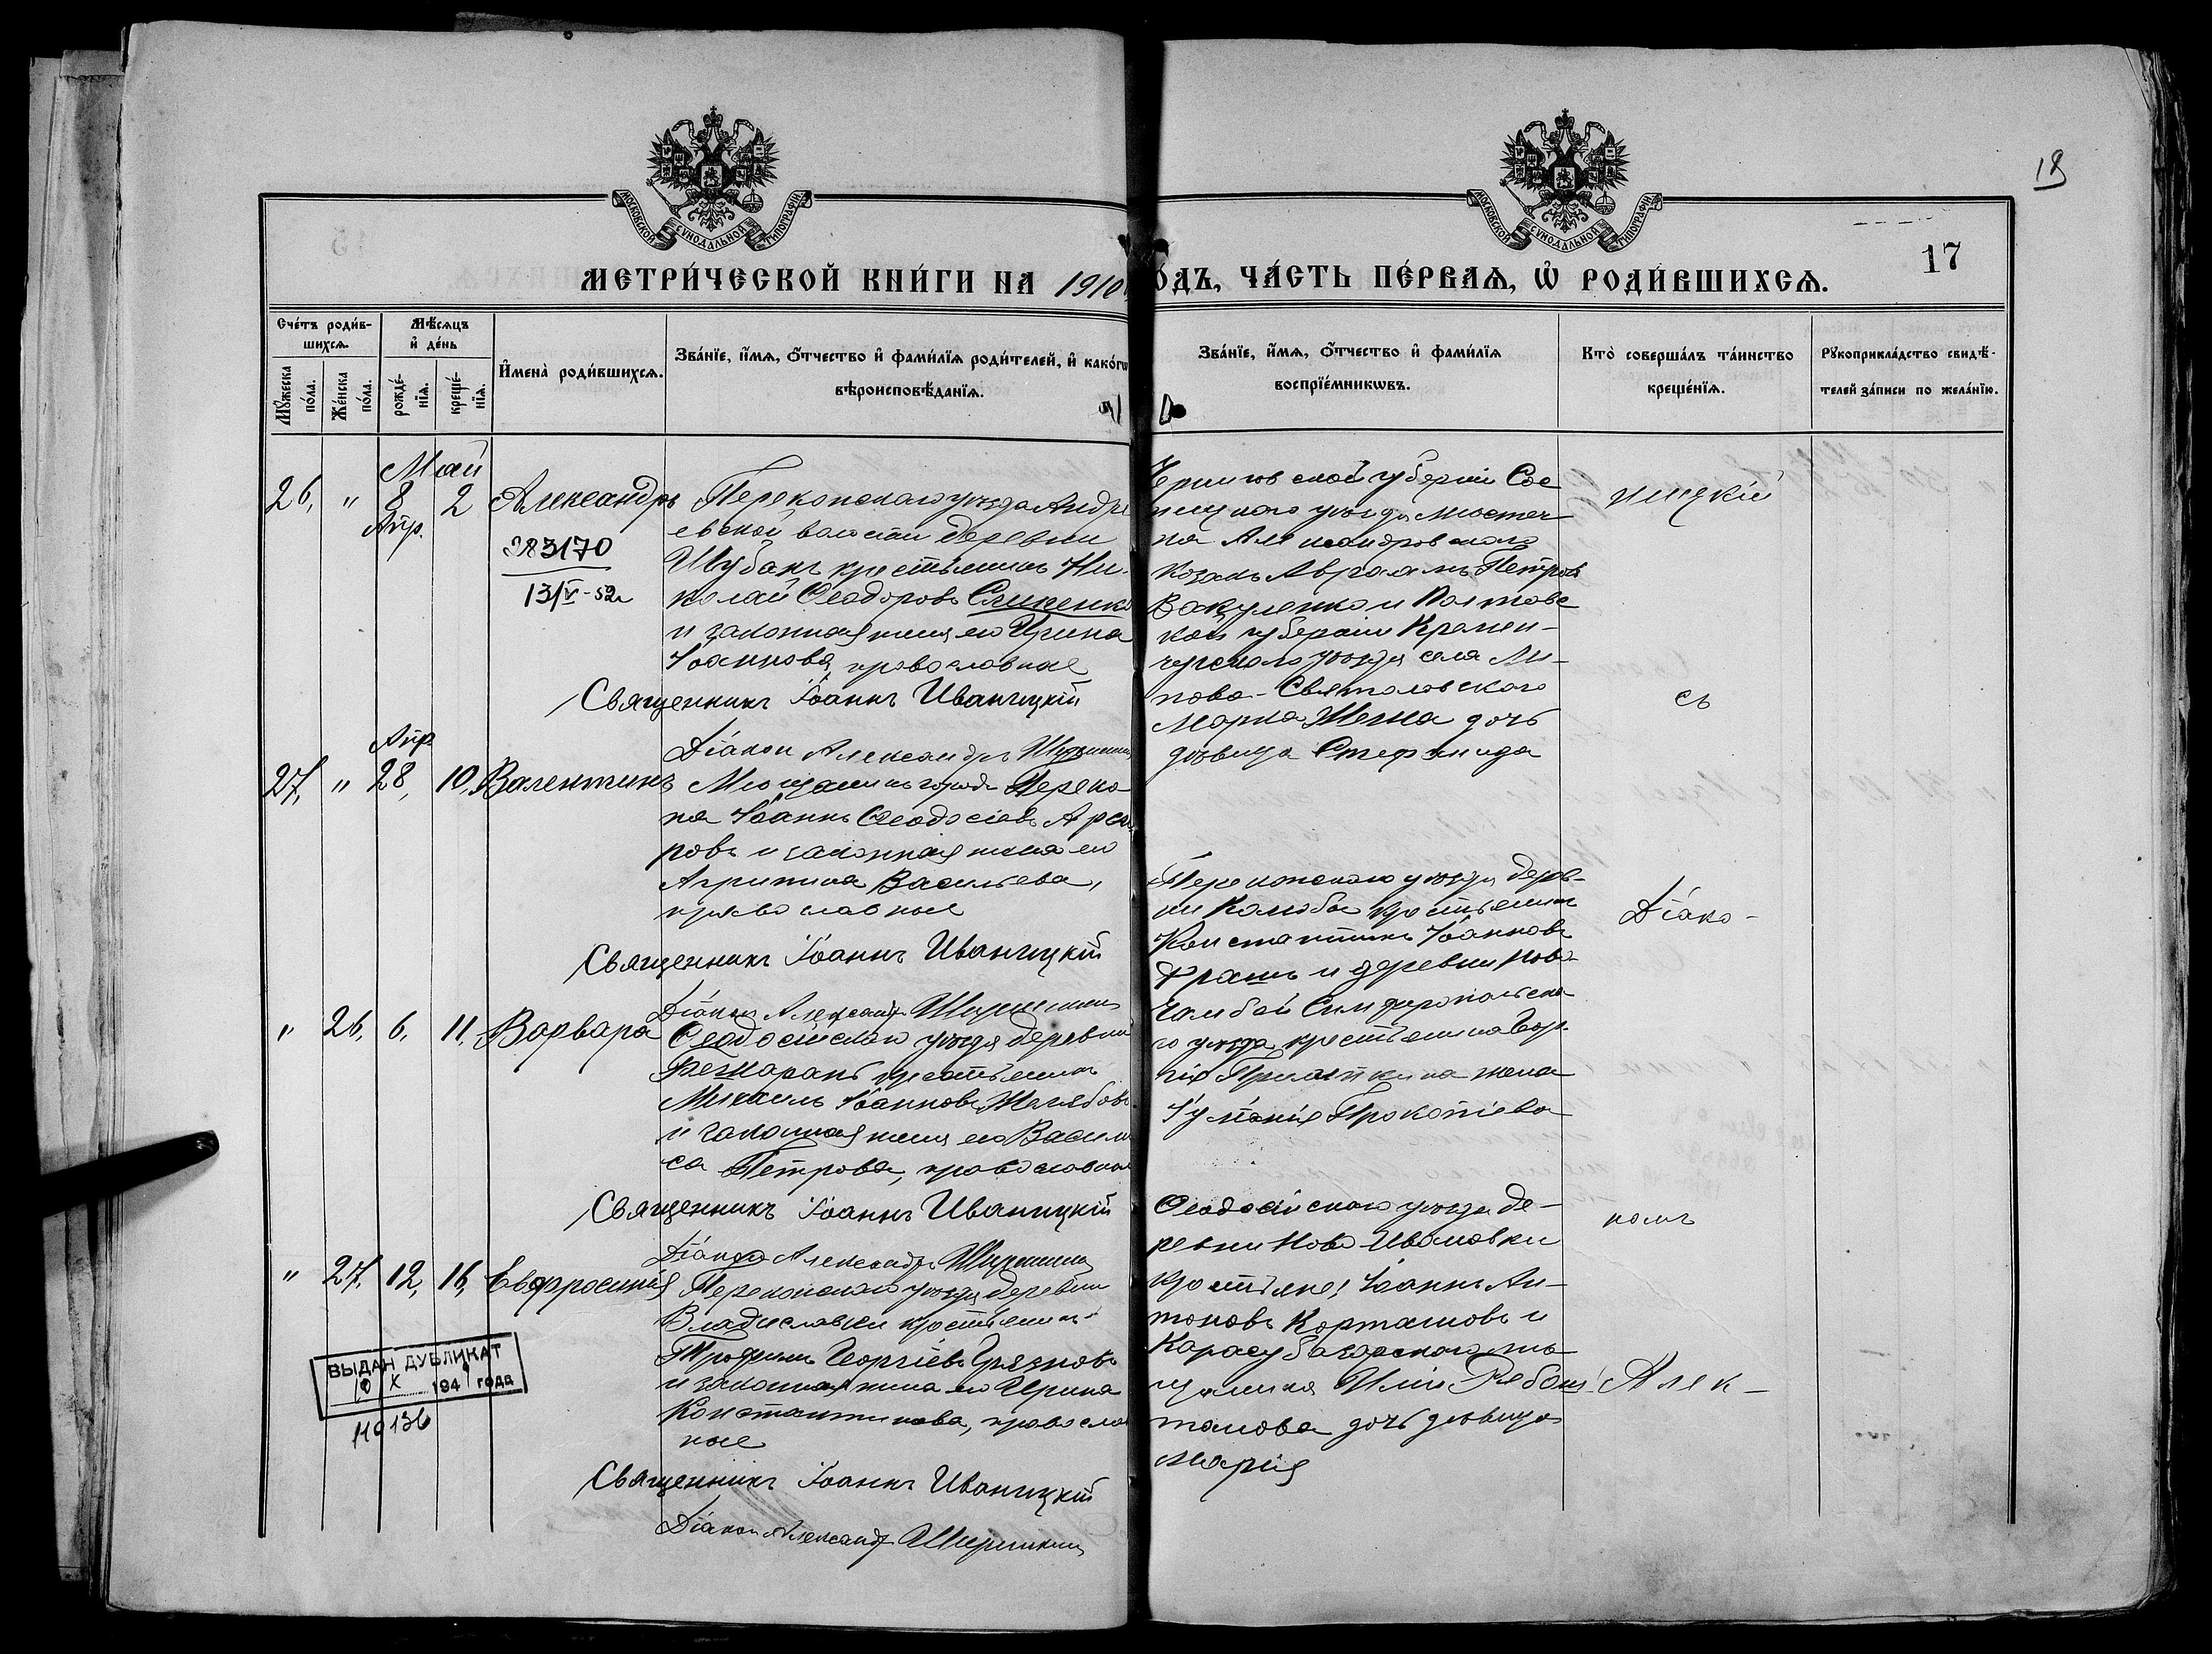 18
17
МОСКОВСКОЙ СУНОДАЛЬНОЙ ТИПОГРАФІИ
МОСКОВСКОЙ СУНОДАЛЬНОЙ ТИПОГРАФІИ
МЕТРИ́ЧЕСКОЙ КНИ́ГИ НА 1910 ОДЪ, ЧА́СТЬ ПЕ́РВАѦ, Ѽ РОДИ́ВШИХСѦ.
Сче́тъ роди́в-
шихсѧ.
Мѣ́сѧцъ
и҆ де́нь
Мꙋ́жеска
по́ла.
Же́нска
по́ла.
рожде́-
нїѧ.
креще́-
нїѧ.
И҆мена̀ роди́вшихсѧ.
Зва́нїе, и҆́мѧ, ѻ҆́тчество и҆ фами́лїѧ роди́телей, и҆ како́гѡ
вѣроисповѣ́данїѧ.
Зва́нїе, и҆́мѧ, ѻ҆́тчество и҆ фами́лїѧ
воспрїе́мникѡвъ.
Кто̀ соверша́лъ та́инство
креще́нїѧ.
Рꙋкоприкла́дство свидѣ́-
телей за́писи по жела́нїю.
Май
26, " 8 2 Александръ
Апр.
283170
13/V-52г
Перекопскаго уѣзда Андре
евской волости деревни
Шубанъ крестьянинъ Ни-
колай Ѳеодоровъ Слипенко
и законная жена его Ирина
Іоаннова, православные
Священникъ Іоаннъ Иваницкій
Діакон Александръ
Черниговской губерніи Сос
ницкаго уѣзда местеч
ка Александровскаго
козакъ Авраамъ Петровъ
Вакуленко и Полтавс
кой губерніи Кремен-
чугскаго уѣзда села Ли-
пово-
Марка дочь
дѣвица Стефанида
ницкій
съ
Апр
27, " 28, 10, Валентинъ
Мѣщанинъ города Переко-
па Іоаннъ Ѳеодосіевъ
ровъ и законная жена его
Агрипина Васильева,
православные
Священникъ Іоаннъ Иваницкій
Діаконъ Александръ
Перекопскаго уѣзда дерев-
ни крестьянинъ
Константинъ Іоанновъ
и деревни Ново-
Симферопольска
го уѣзда крестьянина
жена
Іуліанія Прокопіева
Діако-
" 26, 6, 11, Варвара
Ѳеодосійскаго уѣзда деревни
крестьянинъ
Михаилъ Іоанновъ Желябовъ
и законная жена его Васили
са Петрова, православные
Священникъ Іоаннъ Иваницкій
Діаконъ Александръ
Ѳеодосійскаго уѣзда де-
ревни Ново-Ивановки
крестьянинъ Іоаннъ Ан-
тоновъ и
Карасубазарскаго мѣ
щанина Иліи
танова дочь дѣвица
Марія
номъ
Алек-
" 27, 12, 16, Евфросинія
Перекопскаго уѣзда деревни
Владиславки крестьянинъ
Трофимъ Георгіевъ Грязновъ
и законная жена его Ирина
Константинова, православ
ные
Священникъ Іоаннъ Иваницкій
Діакон Александръ
ВЫДАН ДУБЛИКАТ
X 194 года